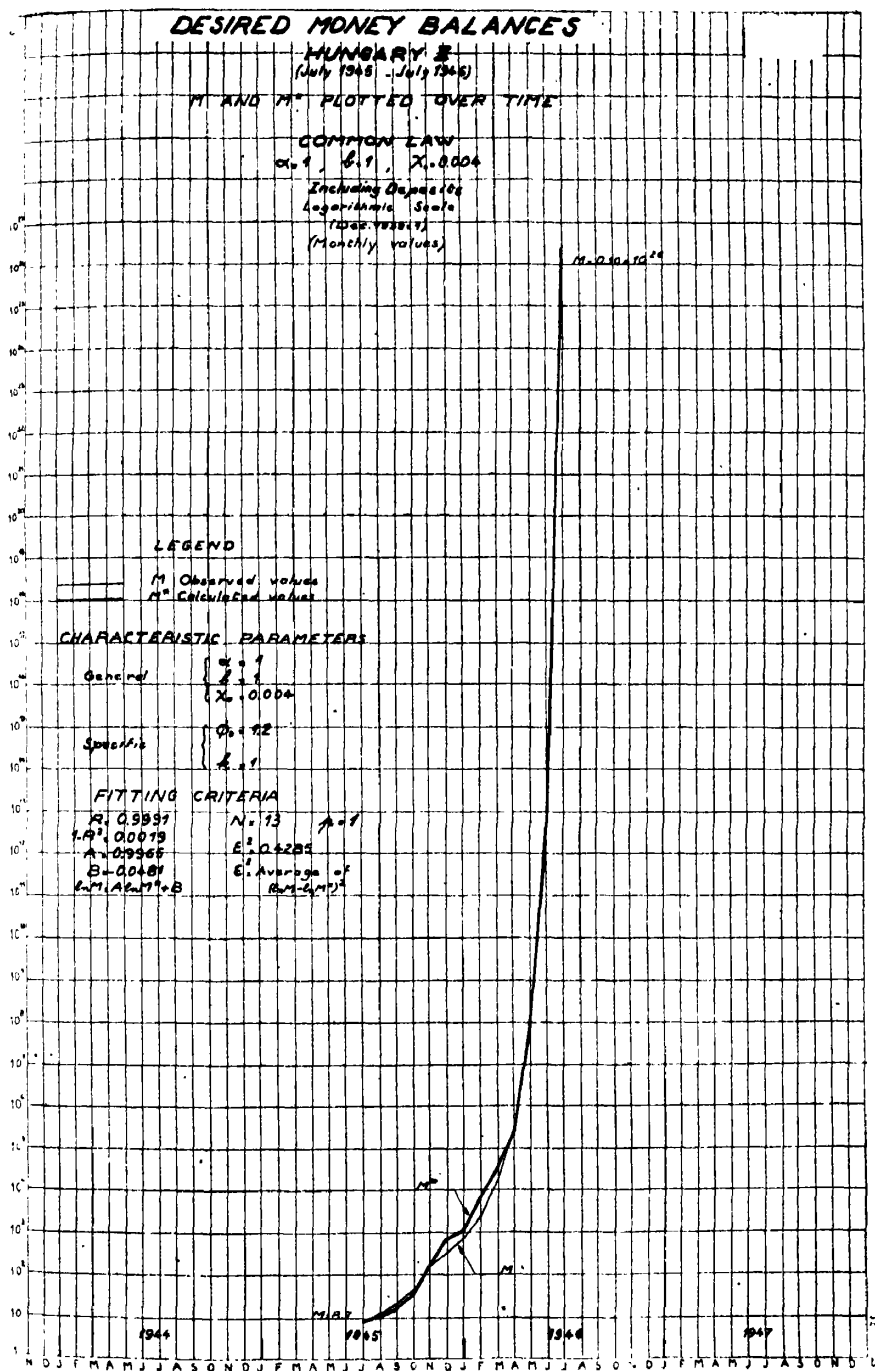 DESIRED MONEY BALANCES
HUNGARY II
(July 1945 - July 1946)
M AND M* PLOTTED OVER TIME
COMMON LAW
α=1 , b=1 , χ₀=0.004
Including Deposits
Logarithmic Scale
(Monthly values)
LEGEND
M Observed values
M* Calculated values
CHARACTERISTIC PARAMETERS
General
α = 1
b = 1
χ₀ = 0.004
Specific
k = 1
FITTING CRITERIA
R = 0.9991 N = 13 p = 1
1-R² = 0.0019
A = 0.9965 E² = 0.4285
E² = Average of
lnM = A lnM* + B (lnM-lnM*)²
M*
M
10³
10²
10
1
1944 1945 1946 1947
N D J F M A M J J A S O N D J F M A M J J A S O N D J F M A M J J A S O N D J F M A M J J A S O N D